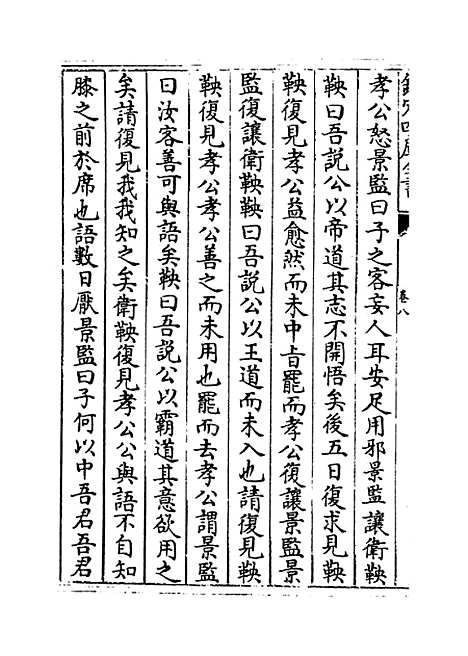 欽定四庫全書
卷八
孝公怒景監曰子之客妄人耳安足用邪景監讓衛鞅
鞅曰吾説公以帝道其志不開悟矣後五日復求見鞅
鞅復見孝公益愈然而未中㫖罷而孝公復讓景監景
監復讓衛鞅鞅曰吾説公以王道而未入也請復見鞅
鞅復見孝公孝公善之而未用也罷而去孝公謂景監
曰汝客善可與語矣鞅曰吾説公以霸道其意欲用之
矣請復見我我知之矣衛鞅復見孝公公與語不自知
膝之前於席也語數日厭景監曰子何以中吾君吾君